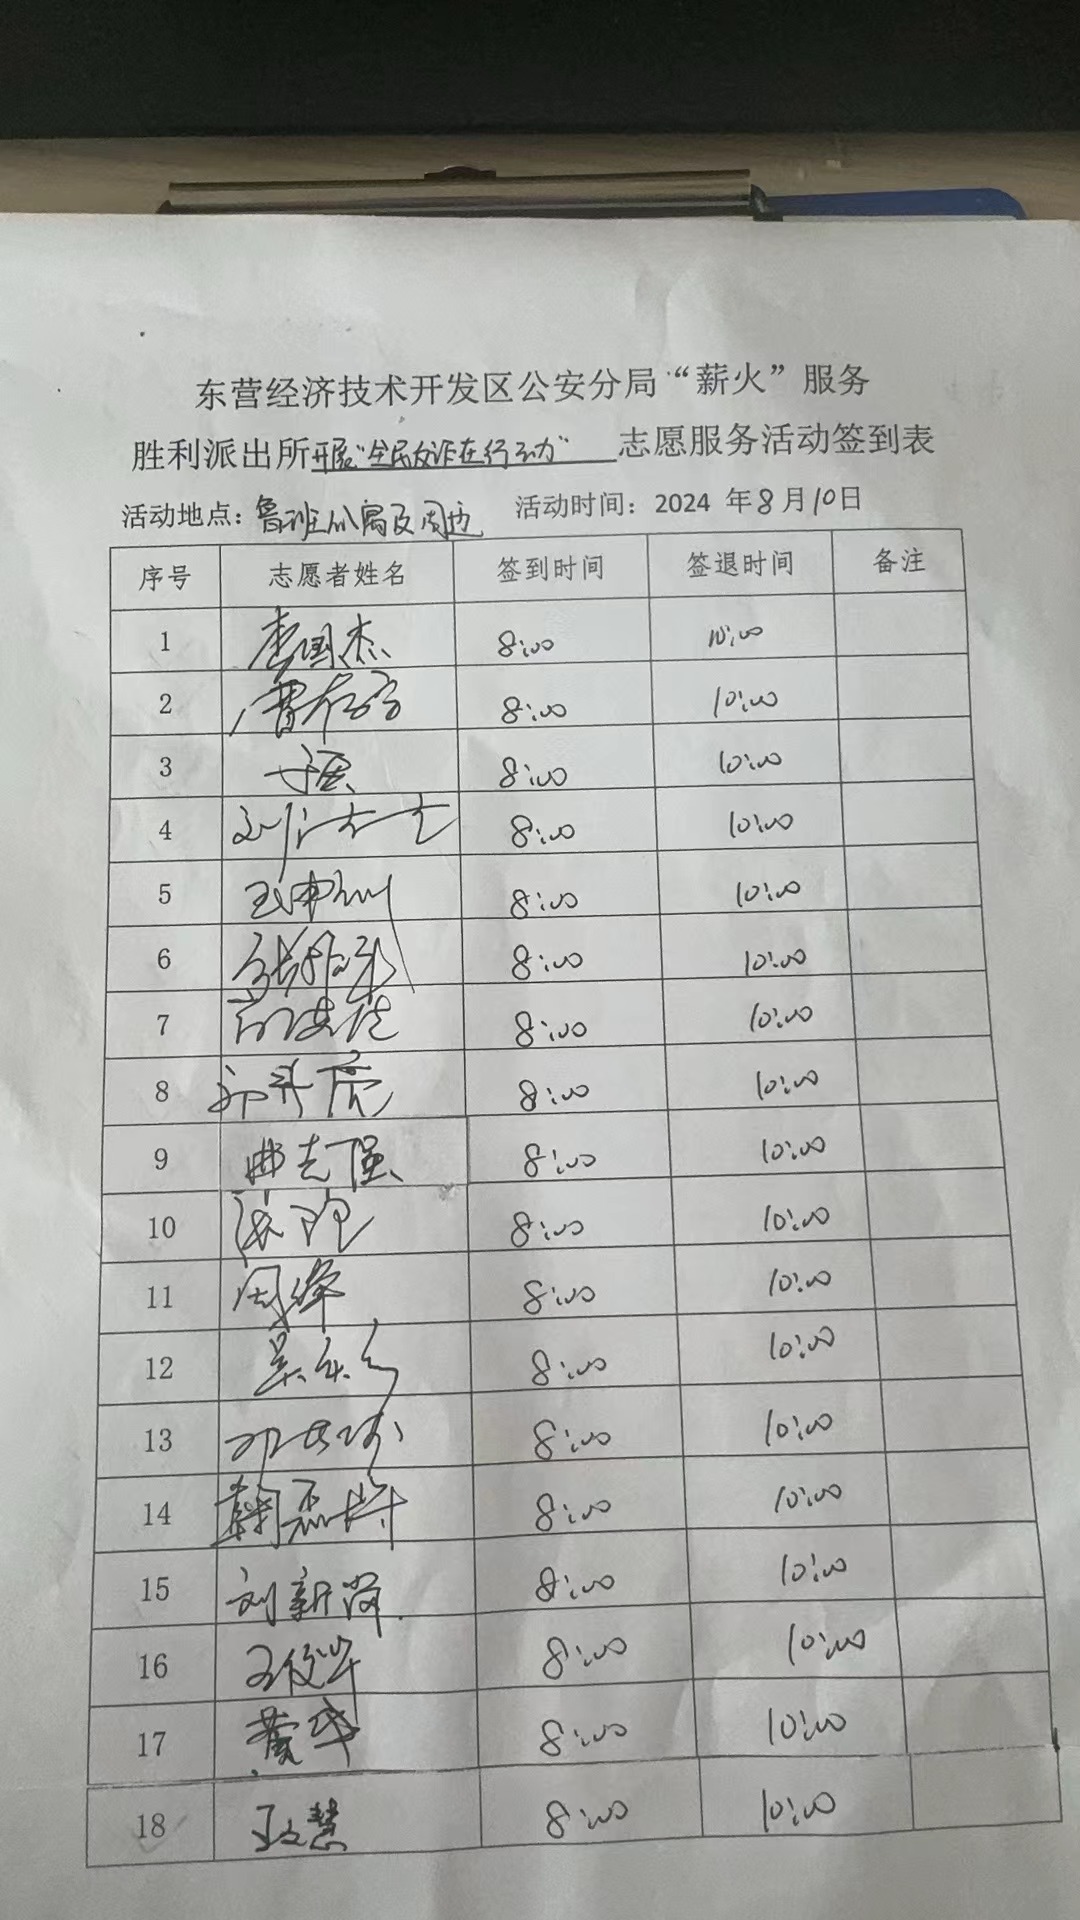 东营经济技术开发区公安分局“薪火”服务
胜利派出所开展“全民反诈在行动”志愿服务活动签到表
活动地点：鲁班公寓及周边 活动时间：2024 年8月10日
序号 志愿者姓名 签到时间 签退时间 备注
1 李国杰 8:00 10:00
2 8:00 10:00
3 8:00 10:00
4 8:00 10:00
5 8:00 10:00
6 8:00 10:00
7 8:00 10:00
8 8:00 10:00
9 曲志强 8:00 10:00
10 8:00 10:00
11 周峰 8:00 10:00
12 8:00 10:00
13 8:00 10:00
14 8:00 10:00
15 8:00 10:00
16 8:00 10:00
17 黄华 8:00 10:00
18 王文慧 8:00 10:00